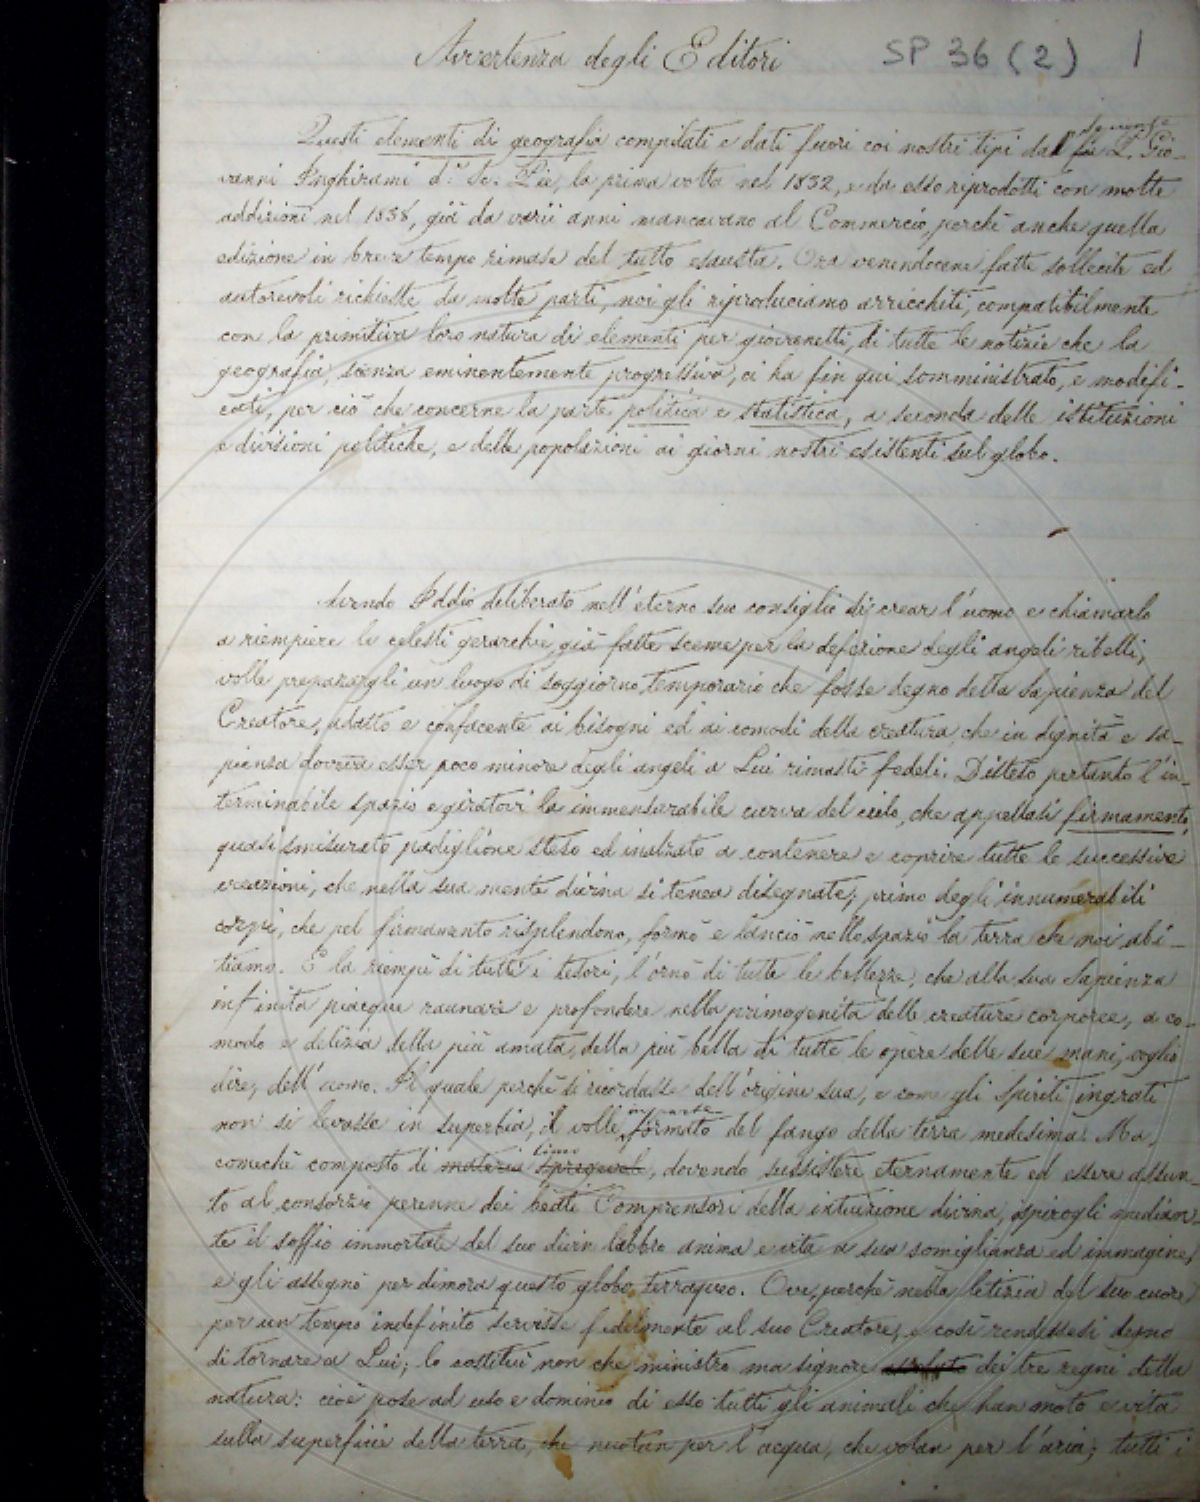 Avvertenza degli Editori SP 36 (2) 1
Questi elementi di geografia compilati e dati fuori coi nostri tipi dal fu P. Gio-
vanni Inghirami d. Sc. Pie, la prima volta nel 1832, e da esso riprodotti con molte
addizioni nel 1838, già da varii anni mancavano al Commercio, perchè anche quella
edizione in breve tempo rimase del tutto esausta. Ora venendocene fatte sollecite ed
autorevoli richieste da molte parti, noi gli riproduciamo arricchiti, compatibilmente
con la primitiva loro natura di elementi per giovanetti, di tutte le notizie che la
geografia, scienza eminentemente progressiva, ci ha fin qui somministrato, e modifi-
cati, per ciò che concerne la parte politica e statistica, a seconda delle istituzioni
e divisioni politiche, e delle popolazioni ai giorni nostri esistenti sul globo.
Avendo Iddio deliberato nell'eterno suo consiglio di crear l'uomo e chiamarlo
a riempiere le celesti gerarchie già fatte sceme per la defezione degli angeli ribelli,
volle preparargli un luogo di soggiorno temporario che fosse degno della sapienza del
Creatore, adatto e confacente ai bisogni ed ai comodi della creatura, che in dignità e sa-
pienza doveva esser poco minore degli angeli a Lui rimasti fedeli. Disteso pertanto l'in-
terminabile spazio e giratovi la immensurabile curva del cielo, che appellasi firmamento,
quasi smisurato padiglione steso ed inalzato a contenere e coprire tutte le successive
creazioni, che nella sua mente divina si tenea disegnate; primo degli innumerabili
corpi, che pel firmamento risplendono, formò e lanciò nello spazio la terra che noi abi-
tiamo. E la riempì di tutti i tesori, l'ornò di tutte le bellezze, che alla sua Sapienza
infinita piacque raunare e profondere nella primogenita delle creature corporee, a co-
modo e delizia della più amata, della più bella di tutte le opere delle sue mani, voglio
dire, dell'uomo. Il quale perchè si ricordasse dell'origine sua, e come gli Spiriti ingrati
non si levasse in superbia, il volle in parte formato del fango della terra medesima. Ma,
comechè composto di materia limo spregevole, dovendo sussistere eternamente ed essere assun-
to al consorzio perenne dei beati Comprensori della intuizione divina, ispirogli median
te il soffio immortale del suo divin labbro anima e vita a sua somiglianza ed immagine,
e gli assegnò per dimora questo globo terraqueo. Ove, perchè nella letizia del suo cuore
per un tempo indefinito servisse fedelmente al suo Creatore, e così rendessesi degno
di tornare a Lui; lo costituì non che ministro ma signore dei tre regni della
natura: cioè pose ad uso e dominio di esso tutti gli animali che han moto e vita
sulla superficie della terra, che nuotan per l'acqua, che volan per l'aria; tutti i